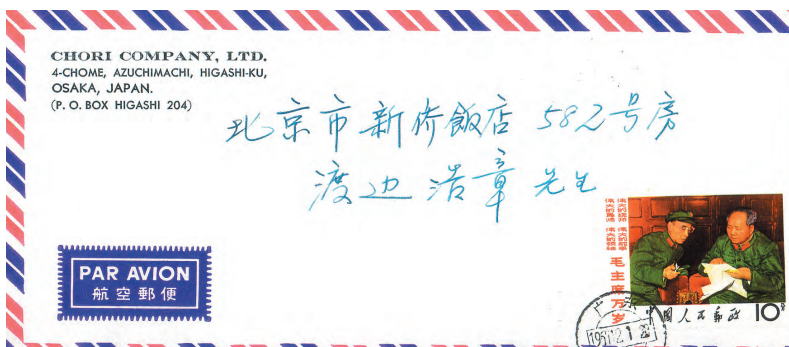 CHORI COMPANY, LTD.
4-CHOME, AZUCHIMACHI, HIGASHI-KU,
OSAKA, JAPAN.
(P. O. BOX HIGASHI 204)
北京市新侨飯店 582号房
渡边浩章 先生
PAR AVION
航空郵便
伟大的导师
伟大的领袖
伟大的统帅
伟大的舵手
毛主席万岁
中国人民邮政
10分
广东